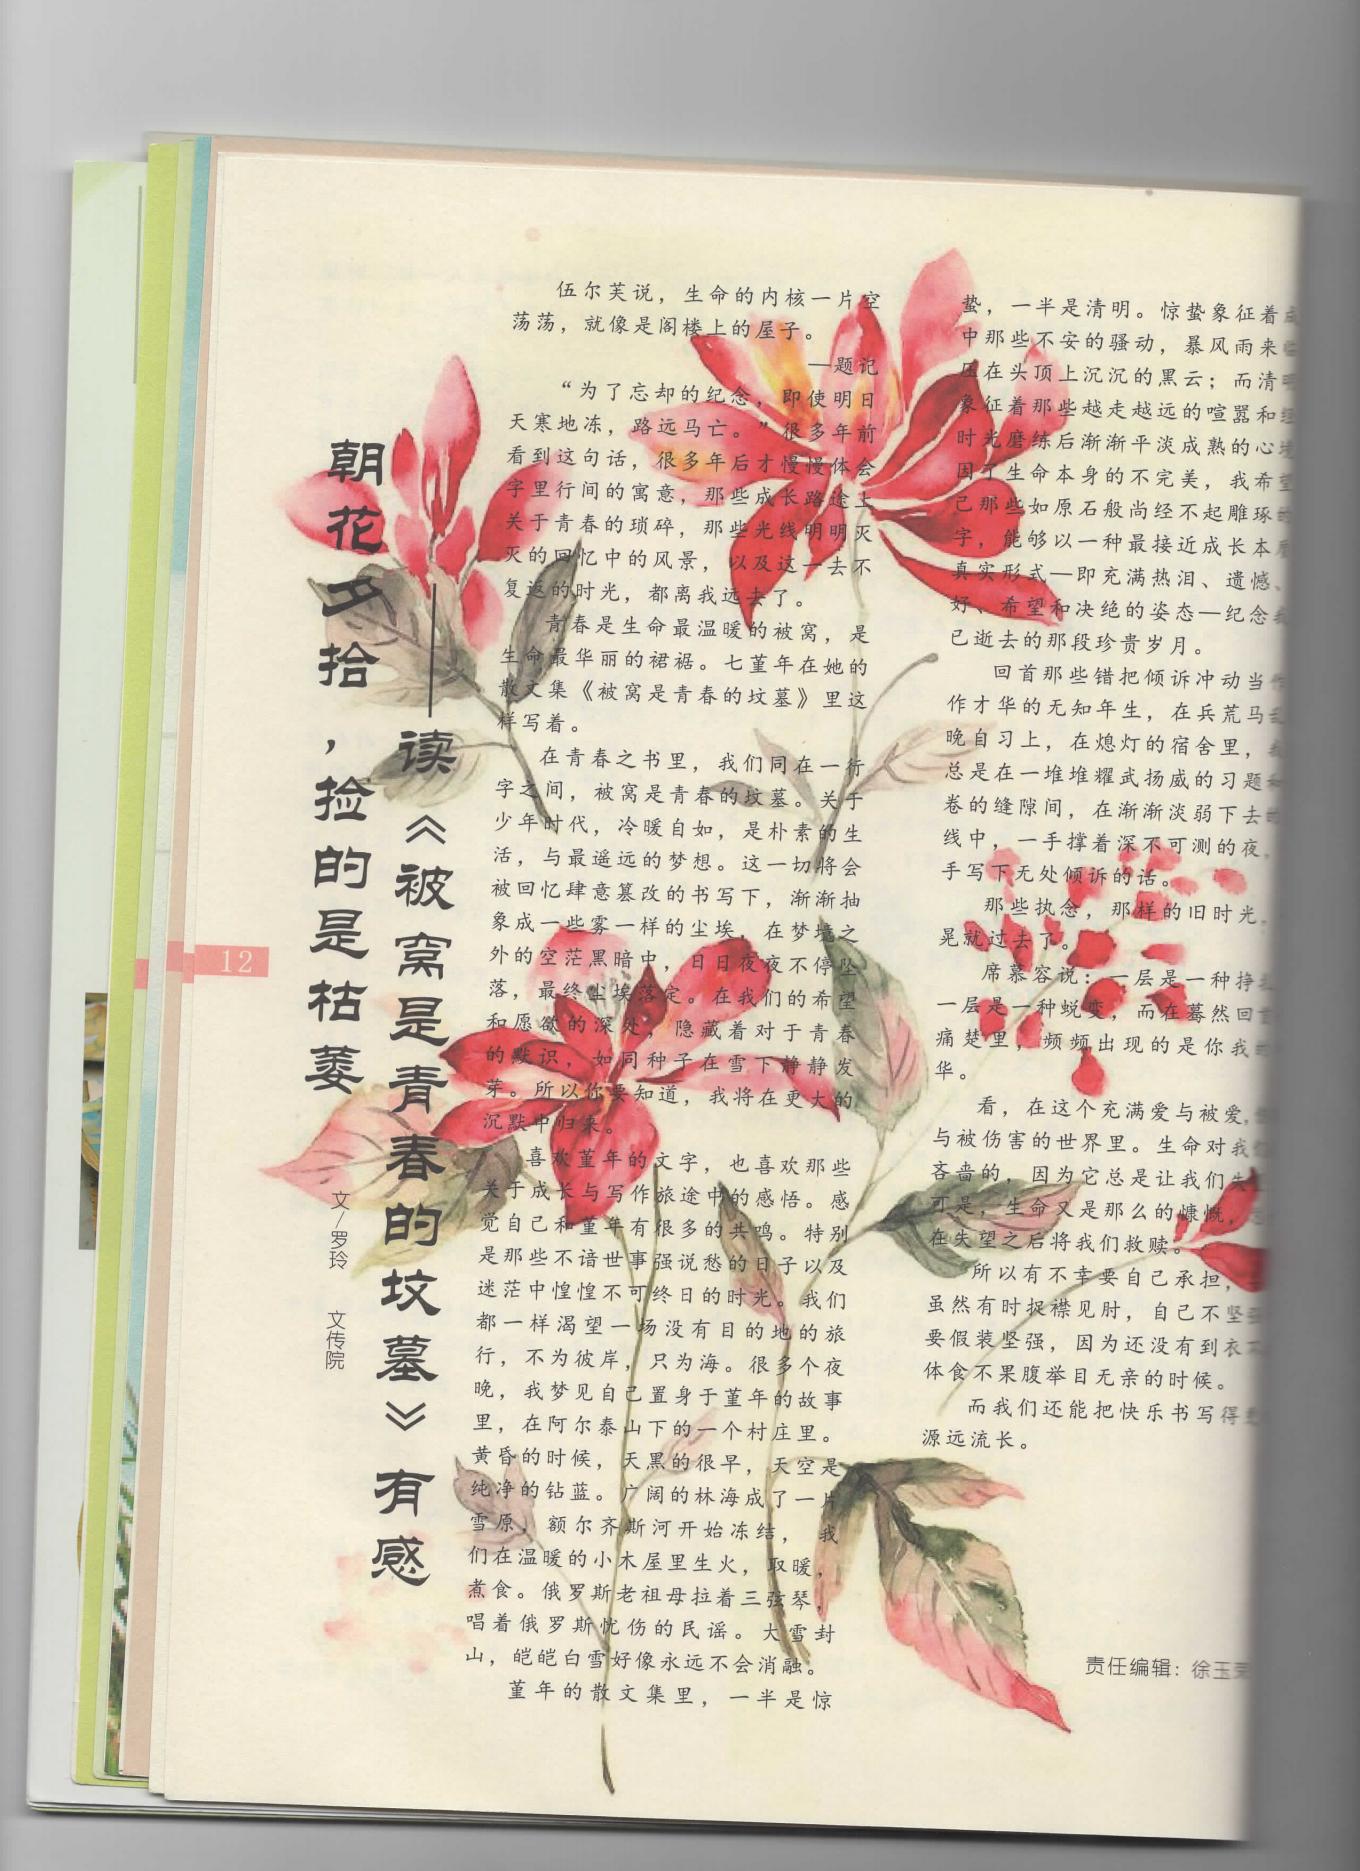 朝花夕拾，捡的是枯萎
——读《被窝是青春的坟墓》有感
文/罗玲 文传院
12
伍尔芙说，生命的内核一片空
荡荡，就像是阁楼上的屋子。
—题记
“为了忘却的纪念，即使明日
天寒地冻，路远马亡。”很多年前
看到这句话，很多年后才慢慢体会
字里行间的寓意，那些成长路途上
关于青春的琐碎，那些光线明明灭
灭的回忆中的风景，以及这一去不
复返的时光，都离我远去了。
青春是生命最温暖的被窝，是
生命最华丽的裙裾。七堇年在她的
散文集《被窝是青春的坟墓》里这
样写着。
在青春之书里，我们同在一行
字之间，被窝是青春的坟墓。关于
少年时代，冷暖自如，是朴素的生
活，与最遥远的梦想。这一切将会
被回忆肆意篡改的书写下，渐渐抽
象成一些雾一样的尘埃，在梦境之
外的空茫黑暗中，日日夜夜不停坠
落，最终尘埃落定。在我们的希望
和愿欲的深处，隐藏着对于青春
的默识，如同种子在雪下静静发
芽。所以你要知道，我将在更大的
沉默中归来。
喜欢堇年的文字，也喜欢那些
关于成长与写作旅途中的感悟。感
觉自己和堇年有很多的共鸣。特别
是那些不谙世事强说愁的日子以及
迷茫中惶惶不可终日的时光。我们
都一样渴望一场没有目的地的旅
行，不为彼岸，只为海。很多个夜
晚，我梦见自己置身于堇年的故事
里，在阿尔泰山下的一个村庄里。
黄昏的时候，天黑的很早，天空是
纯净的钻蓝。广阔的林海成了一片
雪原，额尔齐斯河开始冻结，我
们在温暖的小木屋里生火，取暖，
煮食。俄罗斯老祖母拉着三弦琴，
唱着俄罗斯忧伤的民谣。大雪封
山，皑皑白雪好像永远不会消融。
堇年的散文集里，一半是惊
蛰，一半是清明。惊蛰象征着成
中那些不安的骚动，暴风雨来临
压在头顶上沉沉的黑云；而清明
象征着那些越走越远的喧嚣和经
时光磨练后渐渐平淡成熟的心境
因了生命本身的不完美，我希望
己那些如原石般尚经不起雕琢的
字，能够以一种最接近成长本质
真实形式—即充满热泪、遗憾、
好、希望和决绝的姿态—纪念我
已逝去的那段珍贵岁月。
回首那些错把倾诉冲动当作
作才华的无知年生，在兵荒马乱
晚自习上，在熄灯的宿舍里，我
总是在一堆堆耀武扬威的习题和
卷的缝隙间，在渐渐淡弱下去的
线中，一手撑着深不可测的夜，
手写下无处倾诉的话。
那些执念，那样的旧时光，
晃就过去了。
席慕容说：一层是一种挣扎
一层是一种蜕变，而在蓦然回首
痛楚里，频频出现的是你我的
华。
看，在这个充满爱与被爱，
与被伤害的世界里。生命对我们
吝啬的，因为它总是让我们失
可是，生命又是那么的慷慨，
在失望之后将我们救赎。
所以有不幸要自己承担，
虽然有时捉襟见肘，自己不坚强
要假装坚强，因为还没有到衣不
体食不果腹举目无亲的时候。
而我们还能把快乐书写得
源远流长。
责任编辑：徐玉